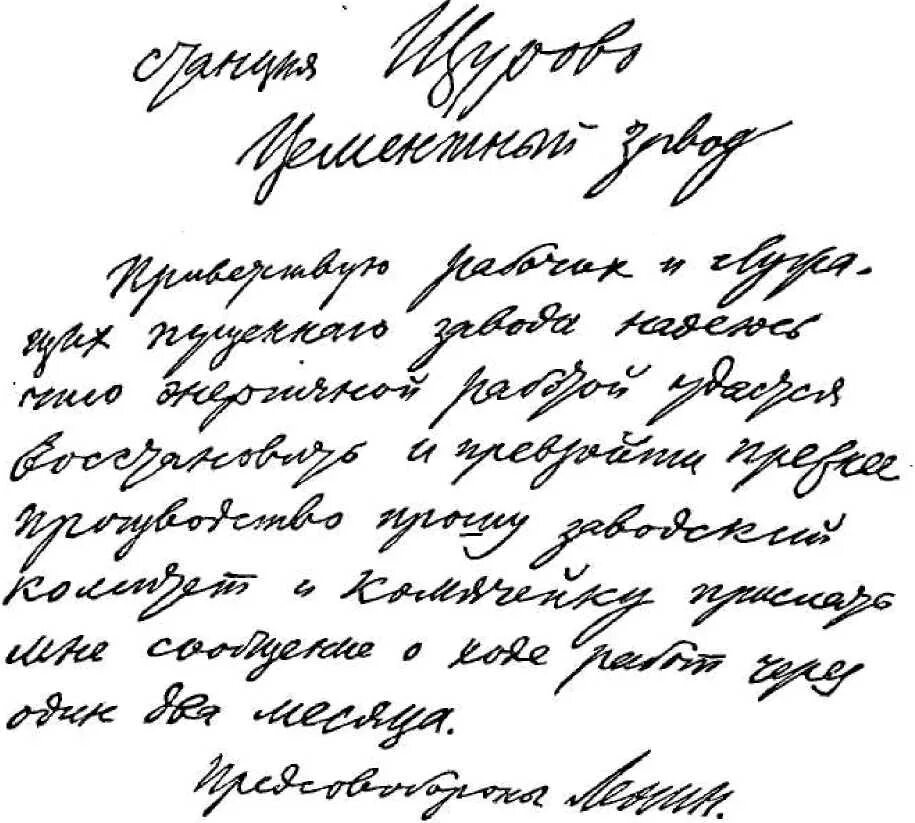 станция Щурово
Цементный завод
Приветствую рабочих и служа-
щих пущеннаго завода надеюсь
что энергичной работой удастся
восстановить и превзойти прежнее
производство прошу заводский
комитет и комячейку прислать
мне сообщение о ходе работ через
один два месяца.
Предсовобороны Ленин.